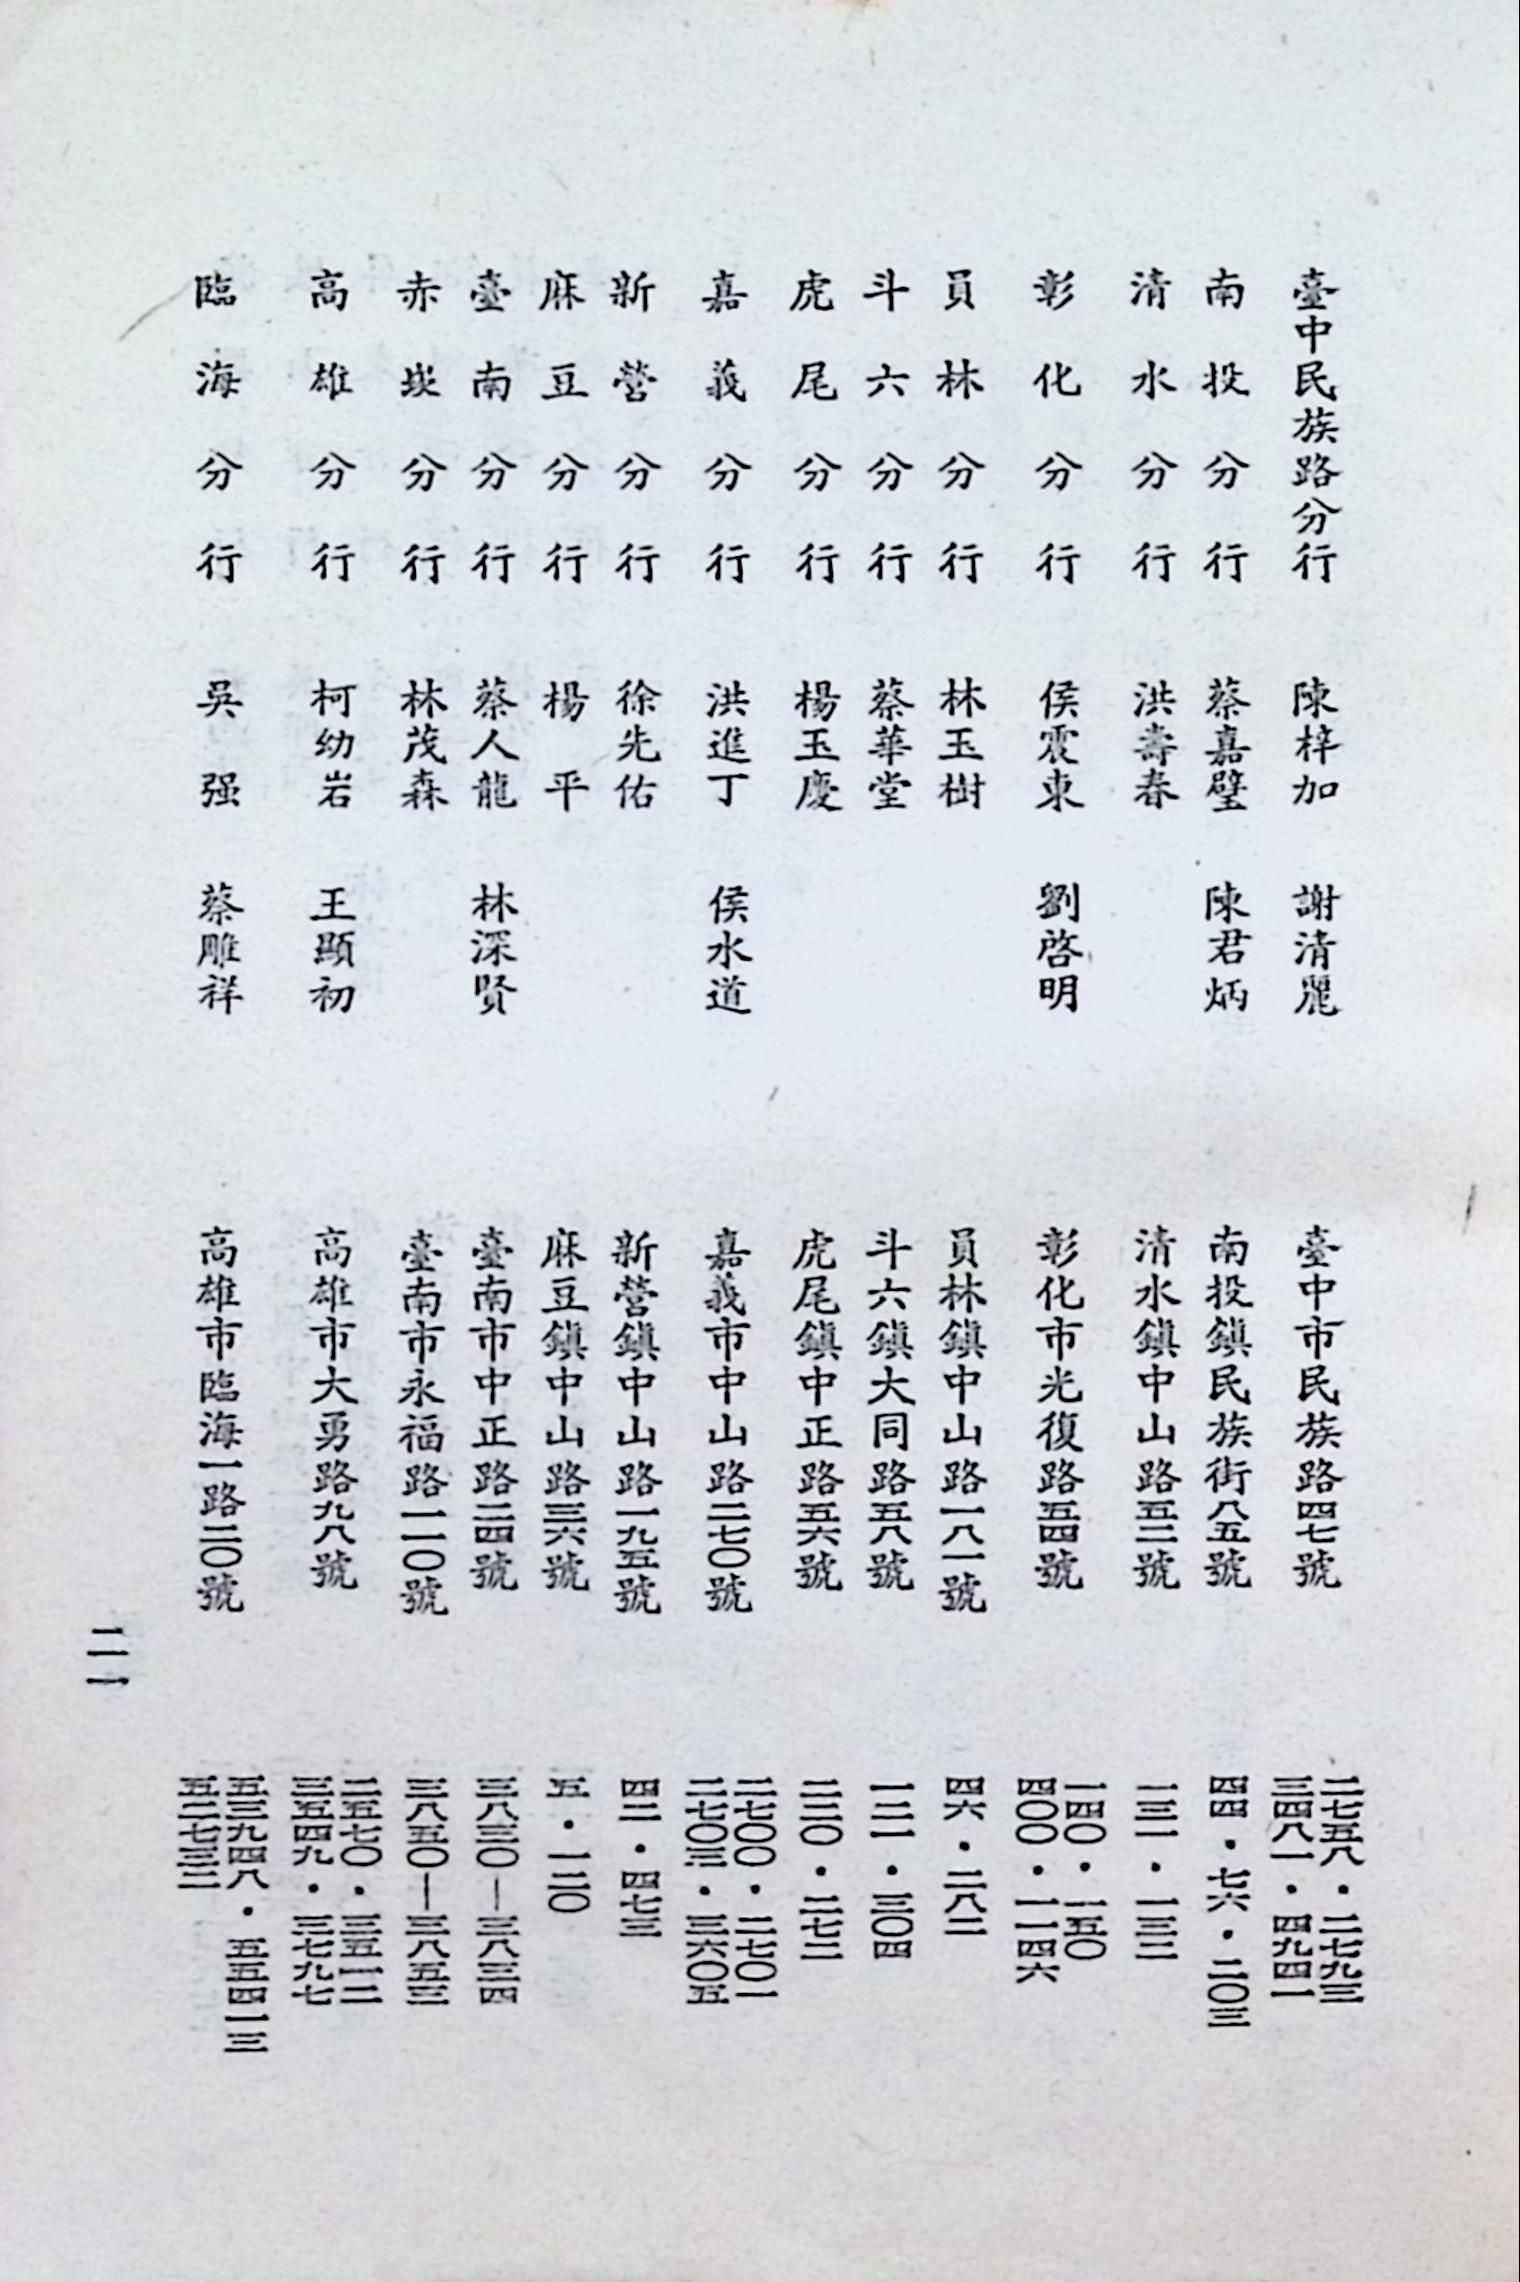 臺中民族路分行 陳梓加 謝清麗 臺中市民族路四七號 二七五八・二七九三 三四八一・四九四一
南投分行 蔡嘉璧 陳君炳 南投鎮民族街八五號 四四・七六・二〇三
清水分行 洪壽春 清水鎮中山路五二號 一三一・一三二
彰化分行 侯震東 劉啓明 彰化市光復路五四號 一四〇・一五〇 四〇〇・一一四六
員林分行 林玉樹 員林鎮中山路一八一號 四六・二八二
斗六分行 蔡華堂 斗六鎮大同路五八號 一二一・三〇四
虎尾分行 楊玉慶 虎尾鎮中正路五六號 二二〇・二七二
嘉義分行 洪進丁 侯水道 嘉義市中山路二七〇號 二七〇〇・二七〇一 二七〇三・三六〇五
新營分行 徐先佑 新營鎮中山路一九五號 四二・四七三
麻豆分行 楊平 麻豆鎮中山路三六號 五・一二〇
臺南分行 蔡人龍 林深賢 臺南市中正路二四號 三八三〇—三八三四
赤崁分行 林茂森 臺南市永福路一一〇號 三八五〇—三八五三
高雄分行 柯幼岩 王顯初 高雄市大勇路九八號 二五七〇・三五一二 三五四九・三七九七
臨海分行 吳强 蔡雕祥 高雄市臨海一路二〇號 五三九四八・五五四一三 五二七三二
二一